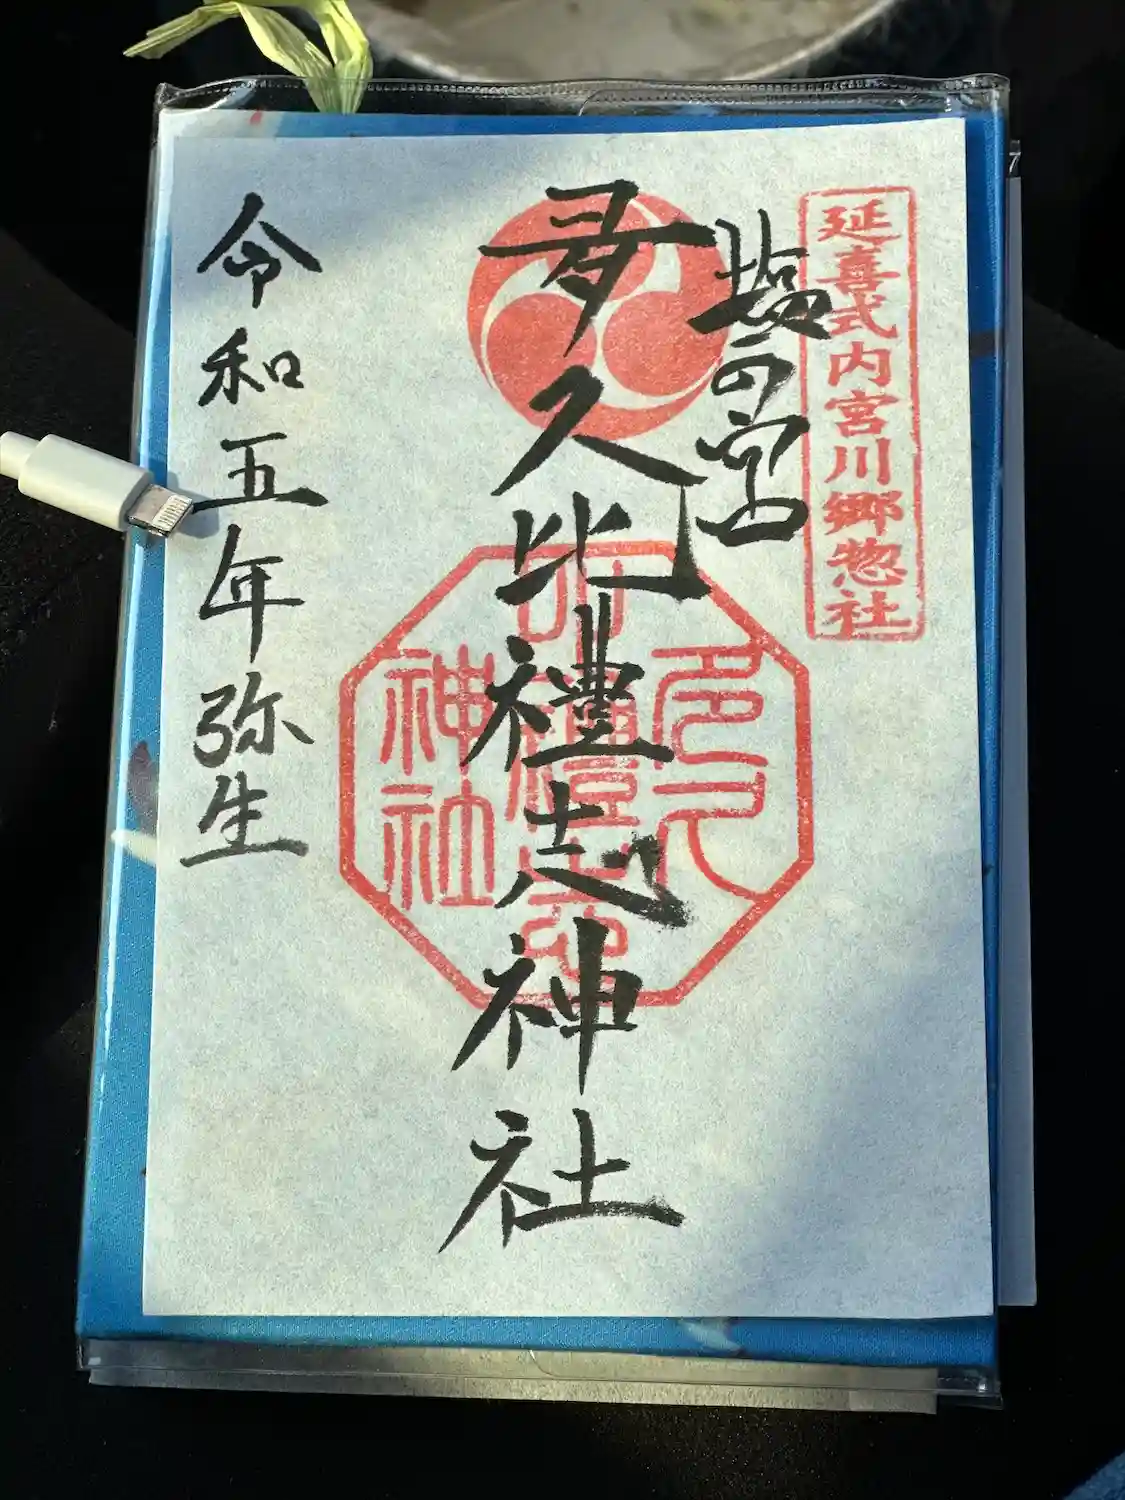 延喜式内宮川郷惣社
塩の宮
多久比禮志神社
多久
比禮志
神社
令和五年弥生